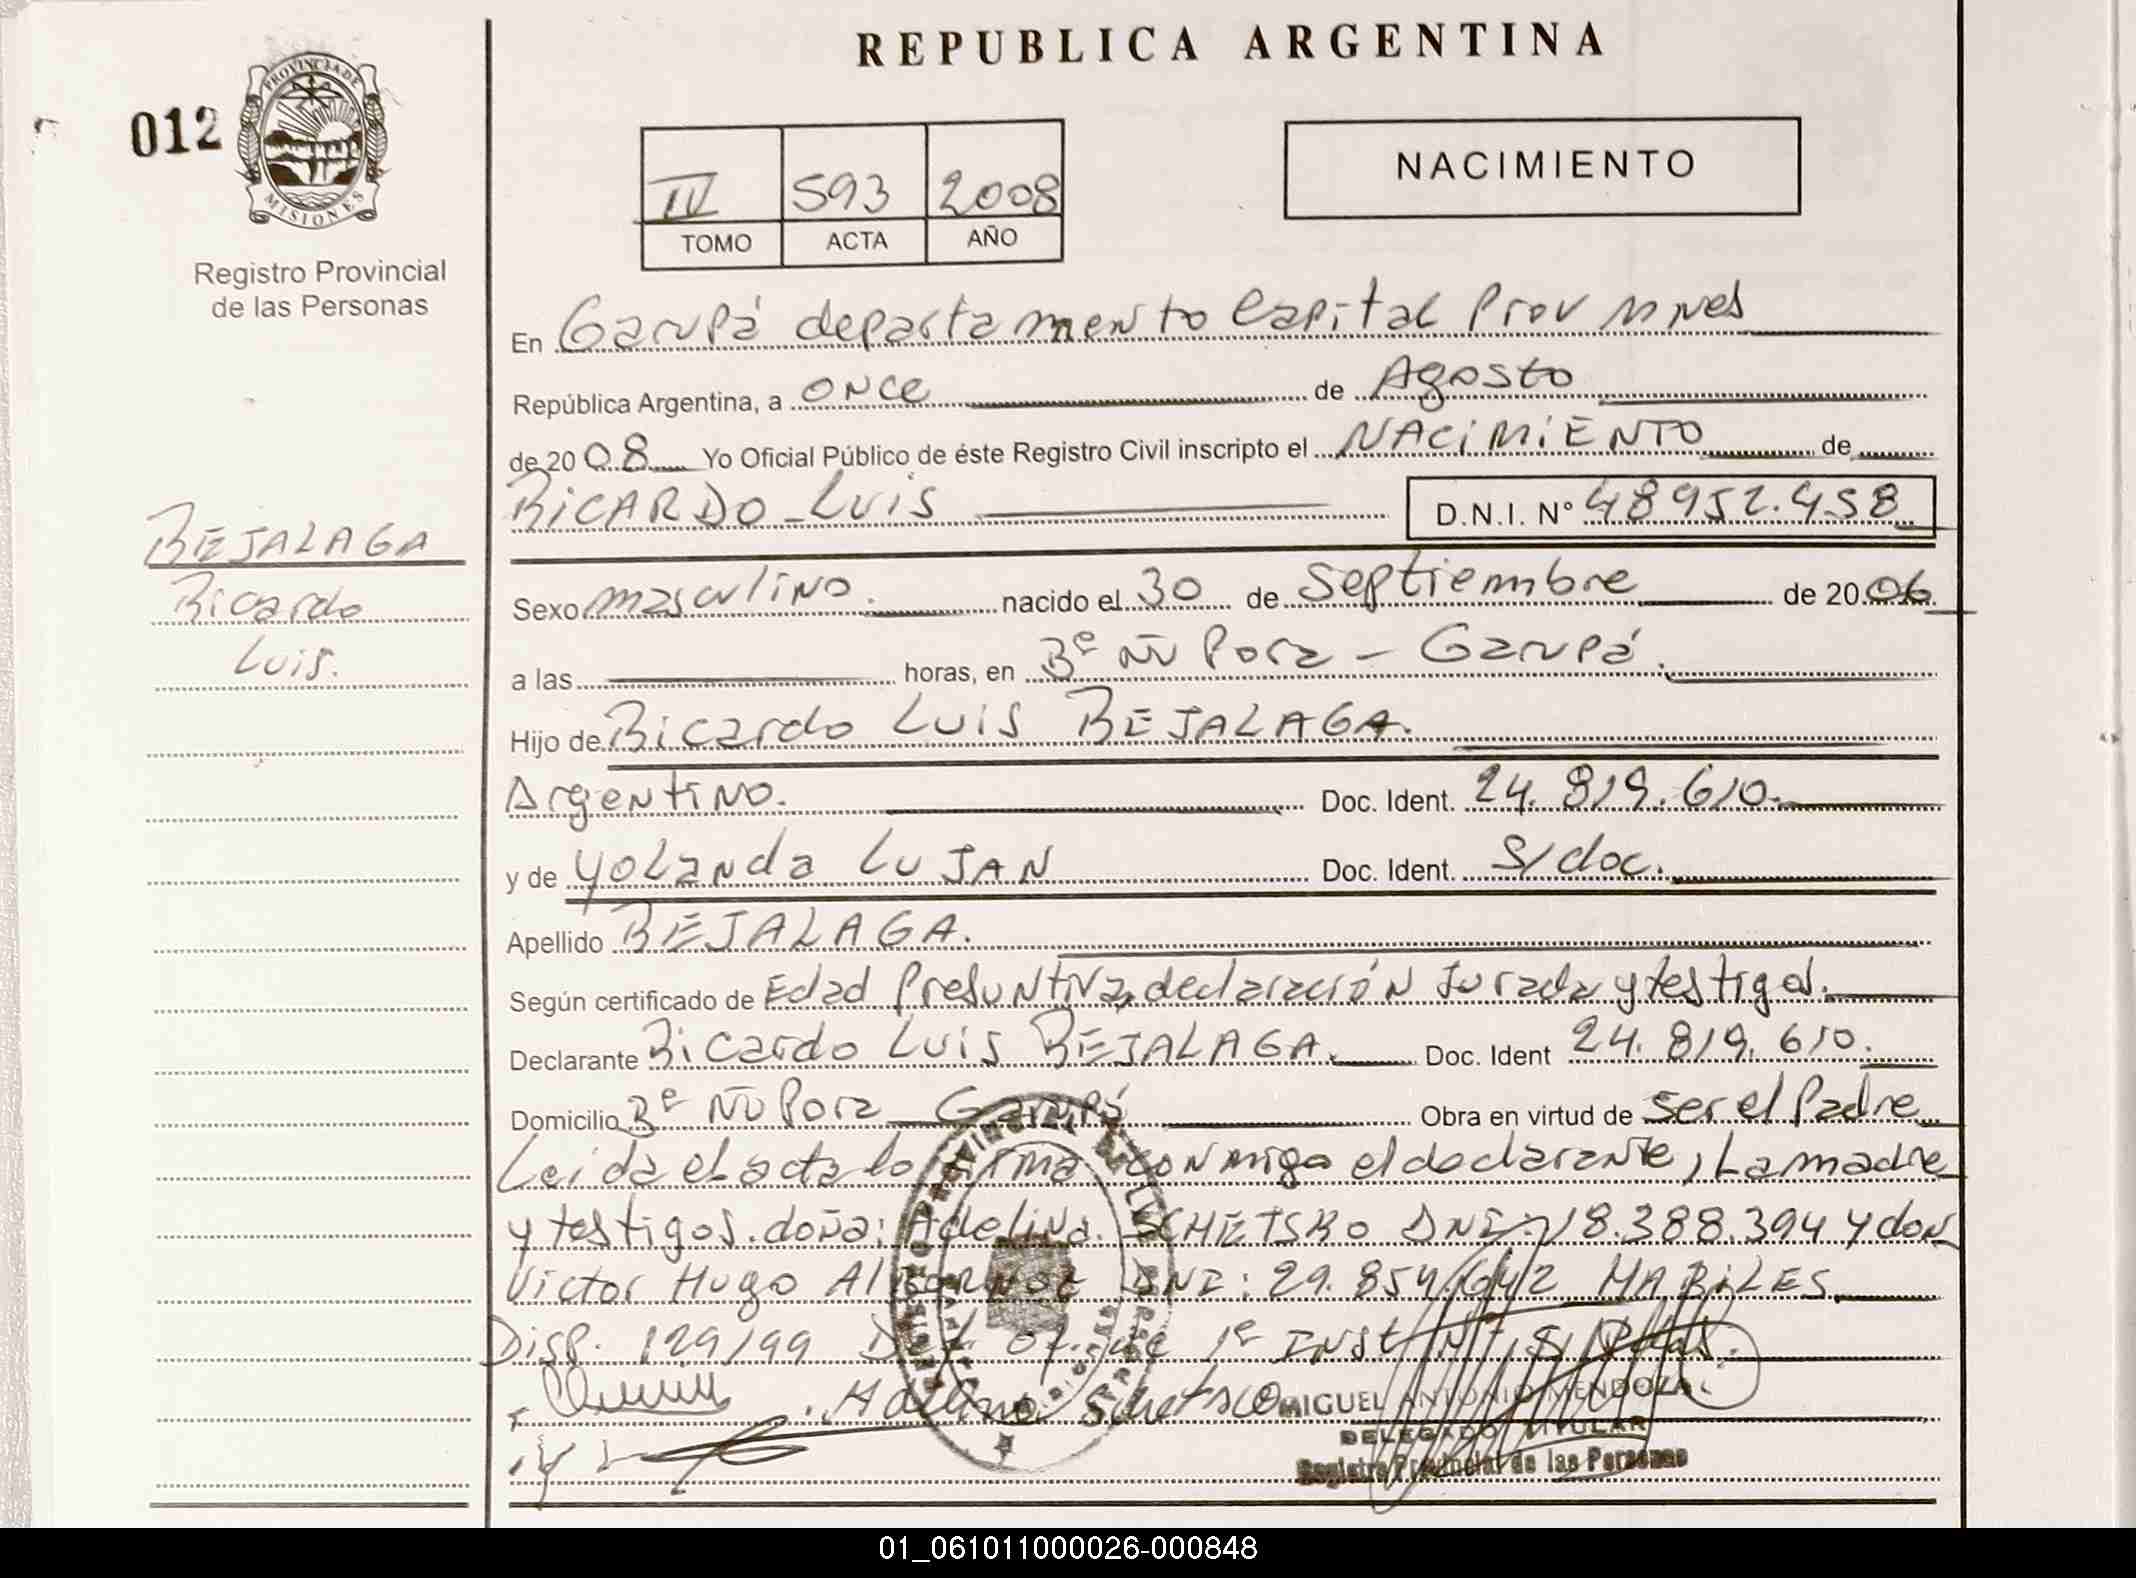 REPUBLICA ARGENTINA
012
PROVINCIA DE
MISIONES
Registro Provincial
de las Personas
IV 593 2008
TOMO ACTA AÑO
NACIMIENTO
En Garupá departamento Capital Prov Mnes
República Argentina, a once de Agosto
de 2008 Yo Oficial Público de éste Registro Civil inscripto el NACIMIENTO de
RICARDO LUIS D.N.I. N° 48952.458
BEJALAGA
Ricardo
Luis.
Sexo masculino. nacido el 30 de Septiembre de 2006
a las horas, en Bº Ñu Pora - Garupá.
Hijo de Ricardo Luis BEJALAGA.
Argentino. Doc. Ident. 24.819.610.
y de Yolanda LUJAN Doc. Ident. S/doc.
Apellido BEJALAGA.
Según certificado de Edad Presuntiva, declaración Jurada y testigos.
Declarante Ricardo Luis BEJALAGA. Doc. Ident 24.819.610.
Domicilio Bº Ñu Pora Garupá Obra en virtud de ser el Padre
Leida el acta lo firma conmigo el declarante, La madre
y testigos. doña: Adelina DNI: 18.388.394 y don
Victor Hugo DNI: 29.854.642 HABILES.
Disp. 129/99 1º Inst
MIGUEL ANTONIO MENDOZA
DELEGADO TITULAR
Registro Provincial de las Personas
01_061011000026-000848